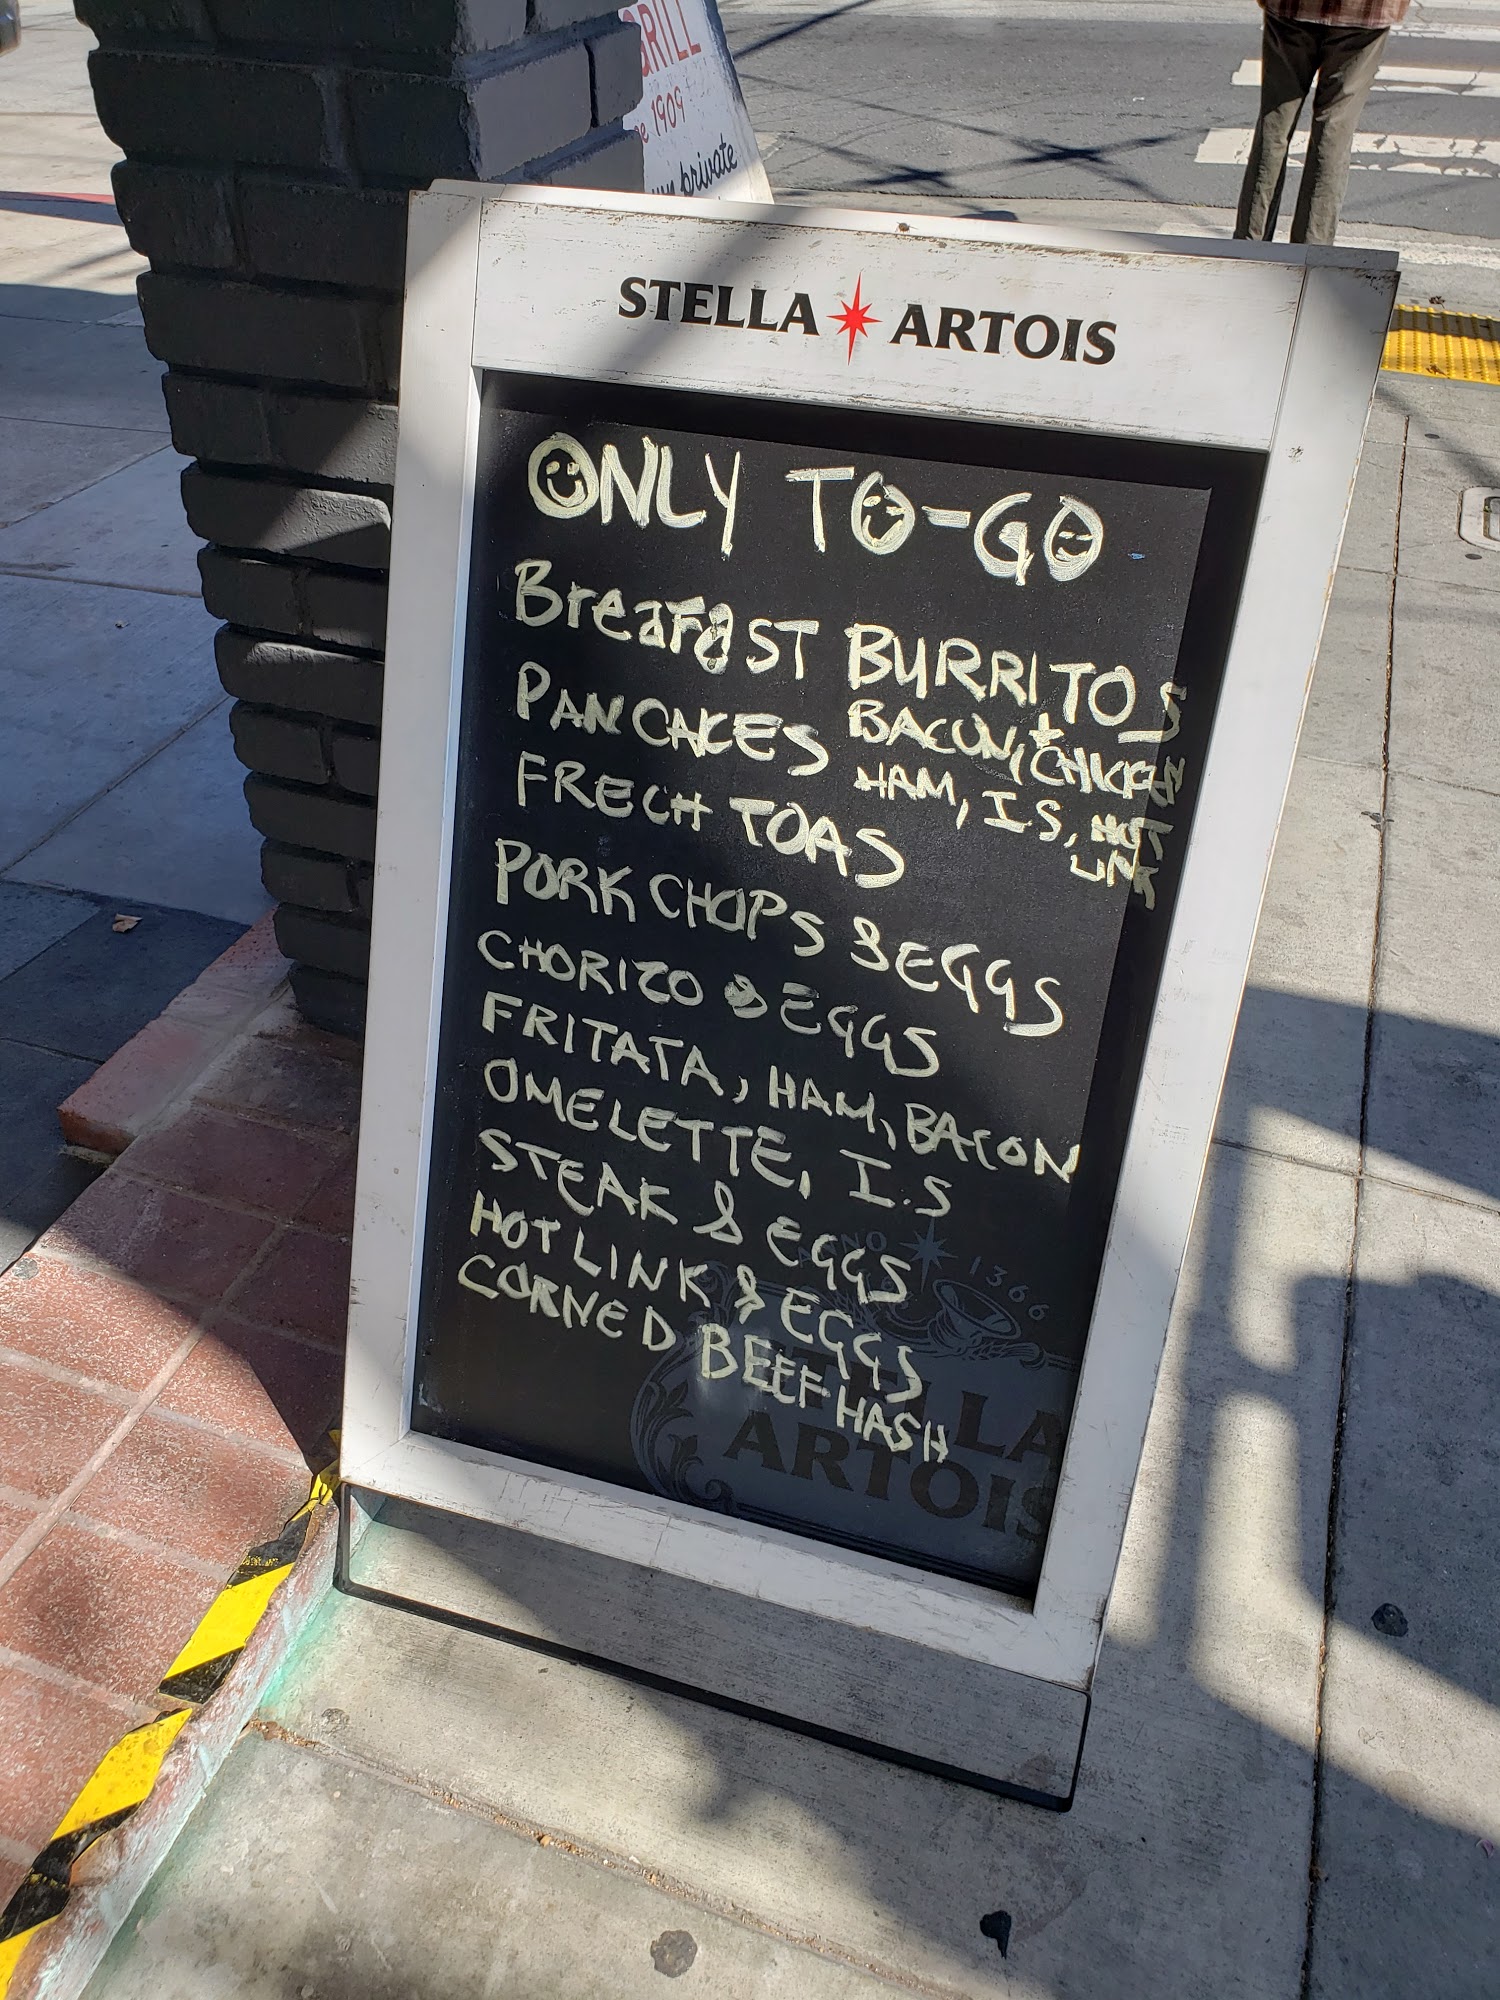 GRILL
1909
private
STELLA ARTOIS
ONLY TO-GO
BreafaST BURRITOS
PANCAKES BACON, + CHICKEN
HAM, I.S, HOT
LINK
FRECH TOAS
PORK CHOPS & EGGS
CHORIZO & EGGS
FRITATA, HAM, BACON
OMELETTE, I.S
STEAK & EGGS
HOT LINK & EGGS
CORNED BEEF HASH
ANNO 1366
STELLA
ARTOIS